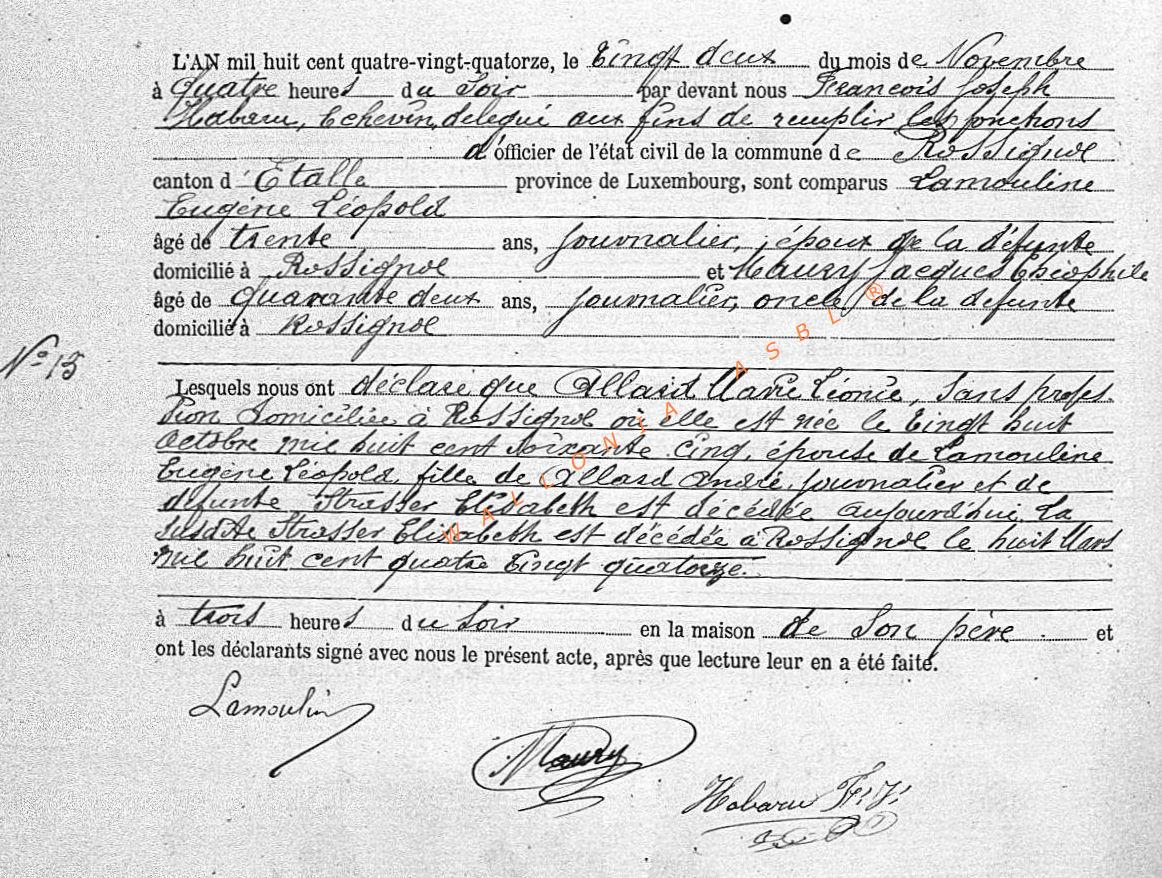 L'AN mil huit cent quatre-vingt-quatorze, le Vingt deux du mois de Novembre
à Quatre heures du Soir par devant nous François Joseph
Habaru, Echevin, delegué aux fins de remplir les fonctions
d'officier de l'état civil de la commune de Rossignol
canton d'Etalle province de Luxembourg, sont comparus Lamouline
Eugène Léopold
âgé de trente ans, journalier, époux de la défunte
domicilié à Rossignol et Maury Jacques Théophile
âgé de quarante deux ans, journalier, oncle de la defunte
domicilié à Rossignol
N° 13
Lesquels nous ont déclaré que Allard Marie Léonie, Sans profes-
sion domiciliée à Rossignol où elle est née le Vingt huit
Octobre mil huit cent soixante Cinq, épouse de Lamouline
Eugène Léopold, fille de Allard André, journalier et de
défunte Strasser Elisabeth est décédée aujourd'hui. La
susdite Strasser Elisabeth est décédée à Rossignol le huit Mars
mil huit cent quatre Vingt quatorze.
à trois heures du Soir en la maison de Son père et
ont les déclarants signé avec nous le présent acte, après que lecture leur en a été faite.
Lamoulin
Maury
Habaru Fs Js
WALLONIA ASBL ®